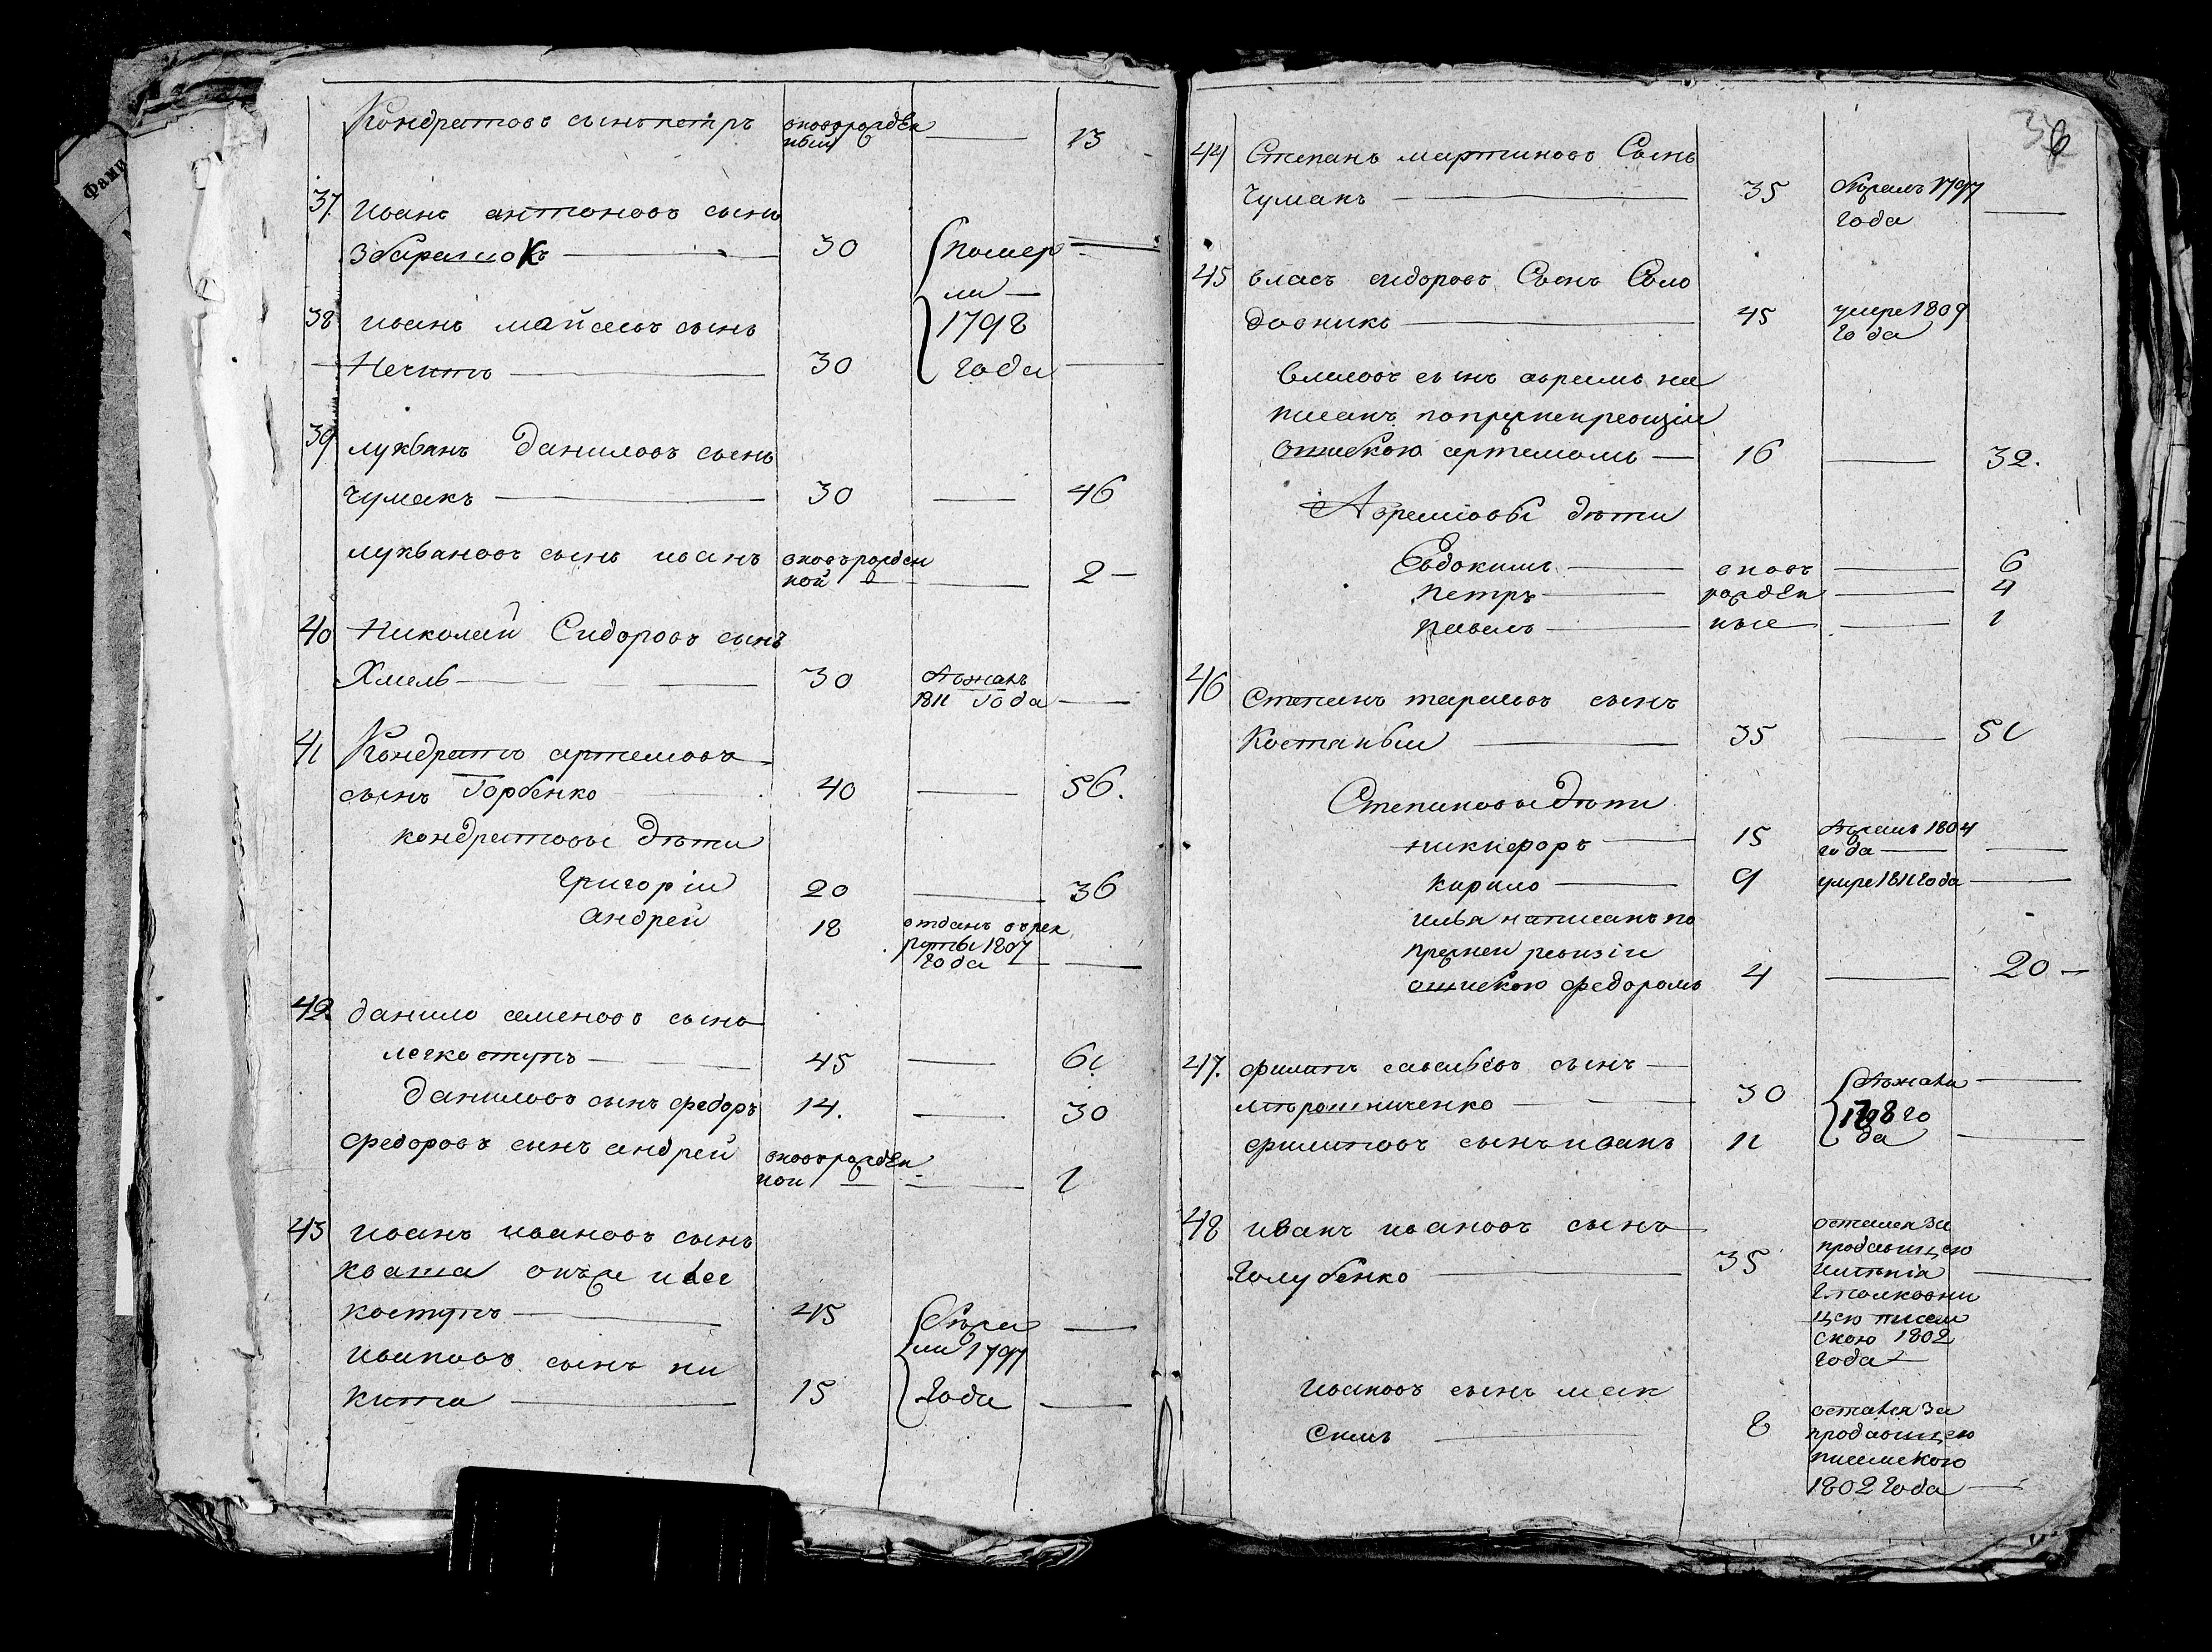 Кондратовъ сынъ петръ вновьрожден 13
ный
37. иванъ антоновъ сынъ
Збарашокъ 30 помер
ли
38 иванъ майсеевъ сынъ 1798
Нечитъ 30 года
39 лукьянъ Даниловъ сынъ
чумакъ 30 46
лукьяновъ сынъ иванъ вновърожден
ной 2
40 Николай Сидоровъ сынъ
Хмель 30 бѣжалъ
1811 года
41 Кондратъ артемовъ
сынъ Горбенко 40 56.
кондратовы дѣти
григоріи 20 36
андреи 18 отданъ въ рек
руты 1807
года
42. данило семеновъ сынъ
легкоступъ 45 61
Даниловъ сынъ федоръ 14. 30
федоровъ сынъ андреи вновьрожден
ной 1
43 иванъ ивановъ сынъ
кваша онъже илег
коступъ 45 бѣжа
ли 1797
ивановъ сынъ ни
кита 15 года
36
44 Степанъ мартиновъ Сынъ
чумакъ 35 бѣжалъ 1797
года
45 власъ сидоровъ Сынъ Соло
довникъ 45 умре 1809
года
власовъ сынъ аврамъ на
писанъ попрежнеи ревизіи
ошибкою артемомъ 16 32.
Аврамовы дѣти
Евдокимъ вновь 6
петръ рожден 4
павелъ ные 1
46 степанъ тарасовъ сынъ
Костяныи 35 51
Степановы дѣти
никифоръ 15 бѣжалъ 1804
года
кирило 9 умре 1811 года
илья написанъ по
прежнеи ревизіи
ошибкою федоромъ 4 20
47. филипъ савельевъ сынъ
мѣрошниченко 30 бѣжали
1798 го
филиповъ сынъ иванъ 11 да
48 иванъ ивановъ сынъ осталея за
продавицею
голубенко 35 имѣнія
г. полковни
цею писем
скою 1802
года
ивановъ сынъ мак
симъ 8 остался за
продавицею
писемскою
1802 года